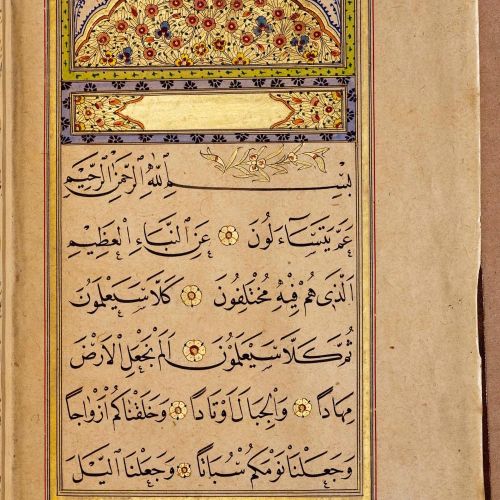 بِسْمِ اللهِ الرَّحْمٰنِ الرَّحِيمِ
عَمَّ يَتَسَاءَلُونَ عَنِ النَّبَاءِ الْعَظِيمِ
الَّذِى هُمْ فِيهِ مُخْتَلِفُونَ كَلَّا سَيَعْلَمُونَ
ثُمَّ كَلَّا سَيَعْلَمُونَ اَلَمْ نَجْعَلِ الْاَرْضَ
مِهَادًا وَالْجِبَالَ اَوْتَادًا وَخَلَقْنَاكُمْ اَزْوَاجًا
وَجَعَلْنَا نَوْمَكُمْ سُبَاتًا وَجَعَلْنَا الَّيْلَ